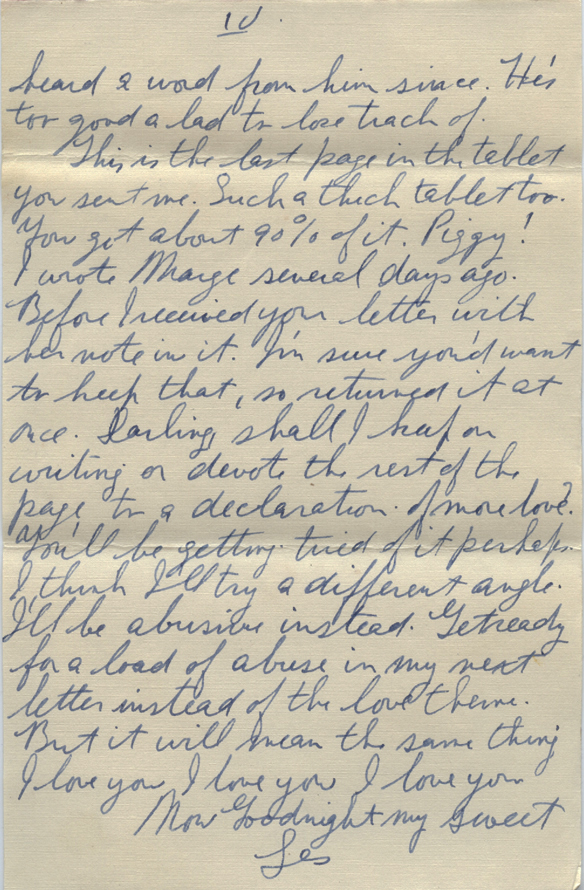 IV.
heard a word from him since. He's
too good a lad to lose track of.
This is the last page in the tablet
you sent me. Such a thick tablet too.
You got about 90% of it. Piggy!
I wrote Marge several days ago.
Before I received your letter with
her note in it. I'm sure you'd want
to keep that, so returned it at
once. Darling, shall I keep on
writing or devote the rest of the
page to a declaration of more love?
You'll be getting tired of it perhaps.
I think I'll try a different angle.
I'll be abusive instead. Get ready
for a load of abuse in my next
letter instead of the love theme.
But it will mean the same thing
I love you I love you I love you
Now Goodnight my sweet
Les